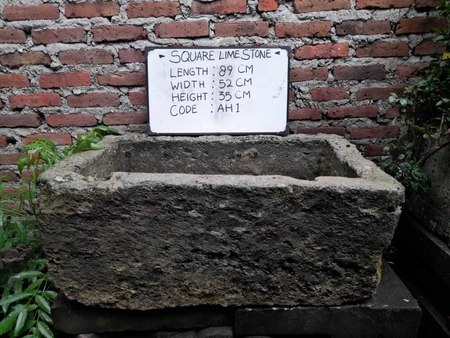 SQUARE LIME STONE
LENGTH : 89 CM
WIDTH : 52 CM
HEIGHT : 35 CM
CODE : AH1